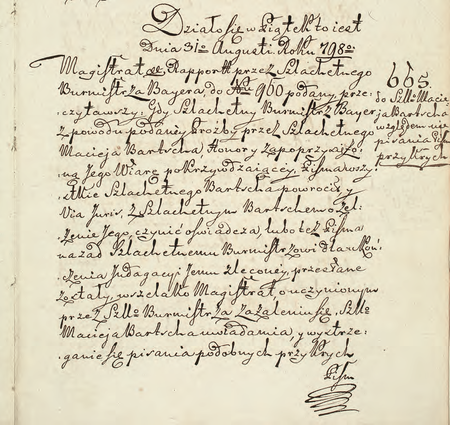 Działo się w Piątek to iest
Dnia 31o Augusti Roku 798o
Magistrat Rapportt przez Szlachetnego
Burmistrza Bayera, do Nru 960 podany, prze-
czytawszy: Gdy Szlachetny Burmistrz Bayer
z powodu podaney Prozby przez Szlachetnego
Macieja Bartscha Honor y Zaprzysiężo-
ną Jego Wiarę pokrzywdzaiącey, Pisma wszy-
stkie Szlachetnego Bartscha powrocić, y
Via Juris, z Szlachetnym Bartschem o Zel-
żenie Jego, czynić oswiadcza, lubo też Pisma
nazad Szlachetnemu Burmistrzowi dla ukoń-
czenia Indagacyi Jemu zleconey, przesłane
zostały, wszelako Magistrat, o uczynionym
przez Szllo Burmistrza Zażaleniu się, Szllo
Macieja Bartscha uwiadamia, y wystrze-
ganie się pisania podobnych przykrych
Pism
665.
do Szllo Macie-
ja Bartscha
względem nie
pisania Pism
przykrych